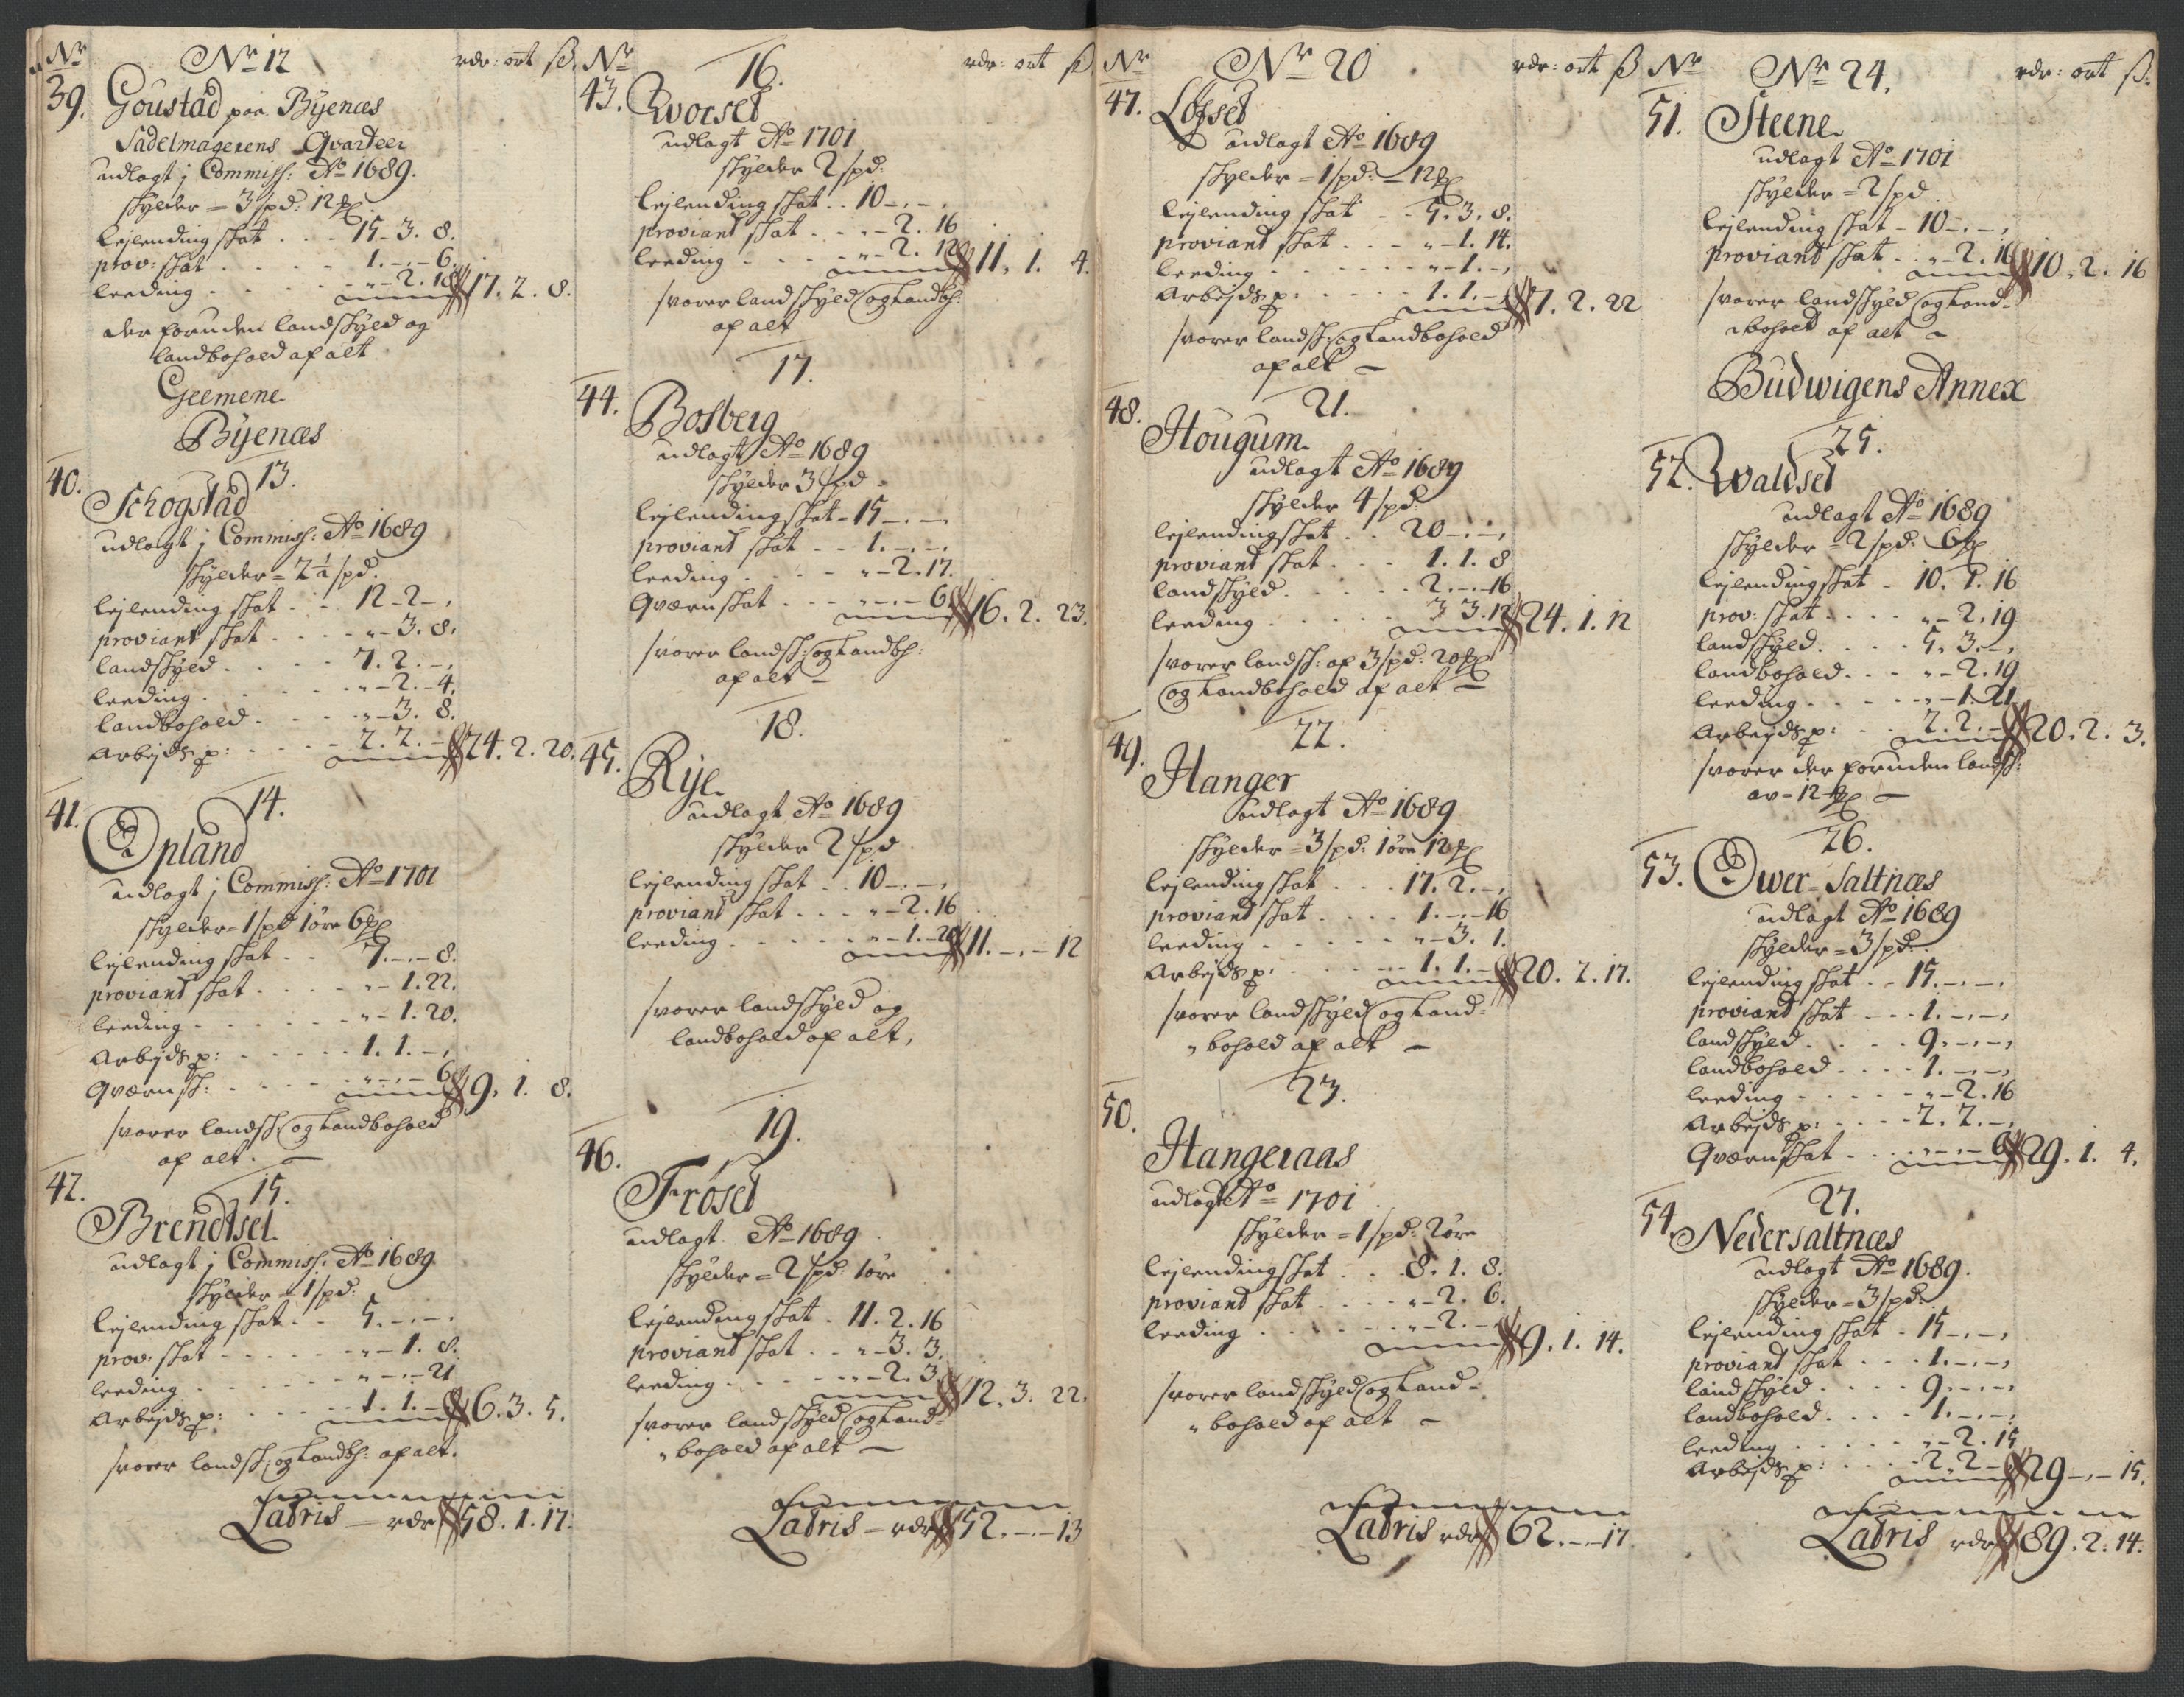 Nr No 12 rdr: ort ß.
39. Goustad paa Byenæs
Sadelmagerens Qvarteer
udlagt j Commiss: Ao 1689.
skylder – 3 spd: 12
lejlending skat . . . 15. 3. 8.
prov: skat . . . . 1. –. – 6.
leeding . . . . „ – 2. 18 17. 2. 8.
der foruden landskyld og
landbohold af alt
Geemene
Byenæs
13.
40. Schogstad
udlagt j Commiss: Ao 1689
skylder – 2½ spd.
lejlending skat . . 12 – 2 –,
proviant skat . . . . „ – 3. 8.
landskyld . . . . 7. 2. –,
leeding . . . . . „ – 2. – 4.
landbohold . . . . „ – 3. 8.
Arbejds p: . . . . 2. 2. – 24. 2. 20.
14.
41. Opland
udlagt j Commiss: Ao 1701
skylder – 1 spd 1 øre 6
lejlending skat . . 7. –. – 8.
proviant skat . . . . „ – 1. 22.
leeding . . . . . „ – 1. 20.
Arbejds p: . . . . . 1. 1. –,
Qværnsk: . . . . „ –. – 6 9. 1. 8.
svarer landsk: og Landbohold
af alt. –
15.
42. Brendtset
udlagt j Commiss: Ao 1689
skylder – 1 spd:
lejlending skat . . 5. –. –.
prov: skat . . . . . „ – 1. 8.
leeding . . . . . „ –. – 21
Arbejds p: . . . . 1. 1. – 6. 3. 5.
svarer landsk: og Landbh: af alt.
Latris – rdr 58. 1. 17.
Nr 16. rdr: ort ß
43. Worset
udlagt Ao 1701
skylder 2 spd:
lejlending skat . . 10 –. –,
proviant skat . . . „ – 2. 16
leeding . . . . „ – 2. 12 11. 1. 4.
svarer landskyld og Landbh:
af alt
17.
44. Bosberg
udlagt Ao 1689
skylder 3 spd –
lejlending skat – 15 –. –
proviant skat . . 1. –. –.
leeding . . . . „ – 2. 17.
Qværnskat . . . „ –. – 6 16. 2. 23.
svarer landsk: og Landbh:
af alt –
18.
45. Rye
udlagt Ao 1689
skylder 2 spd
lejlending skat . . 10 –. –,
proviant skat . . . „ – 2. 16
leeding . . . . . „ – 1. – 20 11. –. – 12
svarer landskyld og
landbohold af alt,
19.
46. Frøset
udlagt Ao 1689
skylder – 2 spd: 1 øre
lejlending skat . 11. 2. 16
proviant skat . . „ – 3. 3.
leeding . . . . . „ – 2. 3. 12. 3. 22.
svarer landskyld og Land-
„ bohold af alt –
Latris – rdr 52. –. – 13
Nr No 20 rdr: ort ß
47. Løfset
udlagt Ao 1689
skylder – 1 spd: – 12
lejlending skat . . 5. 3. 8.
proviant skat . . . „ – 1. 14.
leeding . . . . . . „ – 1. –,
Arbejds p: . . . . 1. 1. – 7. 2. 22
svarer landsk: og Landbohold
af alt –
21.
48. Hougum
udlagt Ao 1689
skylder 4 spd:
lejlending skat . . 20 –. –,
proviant skat . . . 1. 1. 8
landskyld . . . . . 2. –. – 16
leeding . . . . . . 3. 3. 12 24. 1. 12
svarer landsk: af 3 spd: 20
og Landbohold af alt –
22.
49. Hanger
udlagt Ao 1689
skylder – 3 spd: 1 øre 12
lejlending skat . . . 17. 2. –,
proviant skat . . . . 1. –. – 16
leeding . . . . . . „ – 3. 1.
Arbejds p: . . . . . 1. 1. – 20. 2. 17.
svarer landskyld og Land-
„ bohold af alt –
23.
50. Hangeraas
udlagt Ao 1701
skylder – 1 spd: 2 øre
lejlending skat . . 8. 1. 8.
proviant skat . . . . „ – 2. 6.
leeding . . . . . „ – 2. – 9. 1. 14.
svarer landskyld og Land-
„ bohold af alt –
Latris rdr 62. –. – 17
Nr No 24. rdr: ort ß.
51. Steene
udlagt Ao 1701
skylder – 2 spd
lejlending skat – 10 –. –,
proviant skat . „ – 2. 16 10. 2. 16
svarer landskyld og Land-
„ bohold af alt –
Budwigens Annex
25.
52. Waldset
udlagt Ao 1689
skylder – 2 spd: 6
lejlending skat – 10. 1. 16
prov: skat . . . . „ – 2. 19
landskyld . . . . 5. 3. –,
landbohold . . . „ – 2. 19
leeding . . . . . „ – 1. 21.
Arbejds p: . . . 2. 2. – 20. 2. 3.
svarer der foruden landsk:
av – 12 –
26.
53. Ower-Saltnæs
udlagt Ao 1689
skylder – 3 spd:
lejlending skat . . 15. –. –.
proviant skat . . . 1. –. –,
landskyld . . . . 9. –. –,
landbohold . . . . 1. –. –,
leeding . . . . . „ – 2. 16
Arbejds p: . . . . 2. 2. –,
Qværnskat . . . „ –. – 6 29. 1. 4.
27.
54. Nedersaltnæs
udlagt Ao 1689.
skylder – 3 spd:
lejlending skat . 15 –. –,
proviant skat . . . 1. –. –,
landskyld . . . . 9. –. –,
landbohold . . . . 1. –. –,
leeding . . . . . „ – 2. 15
Arbejds p: . . . . 2. 2 – 29 –. – 15.
Latris rdr 89. 2. 14.